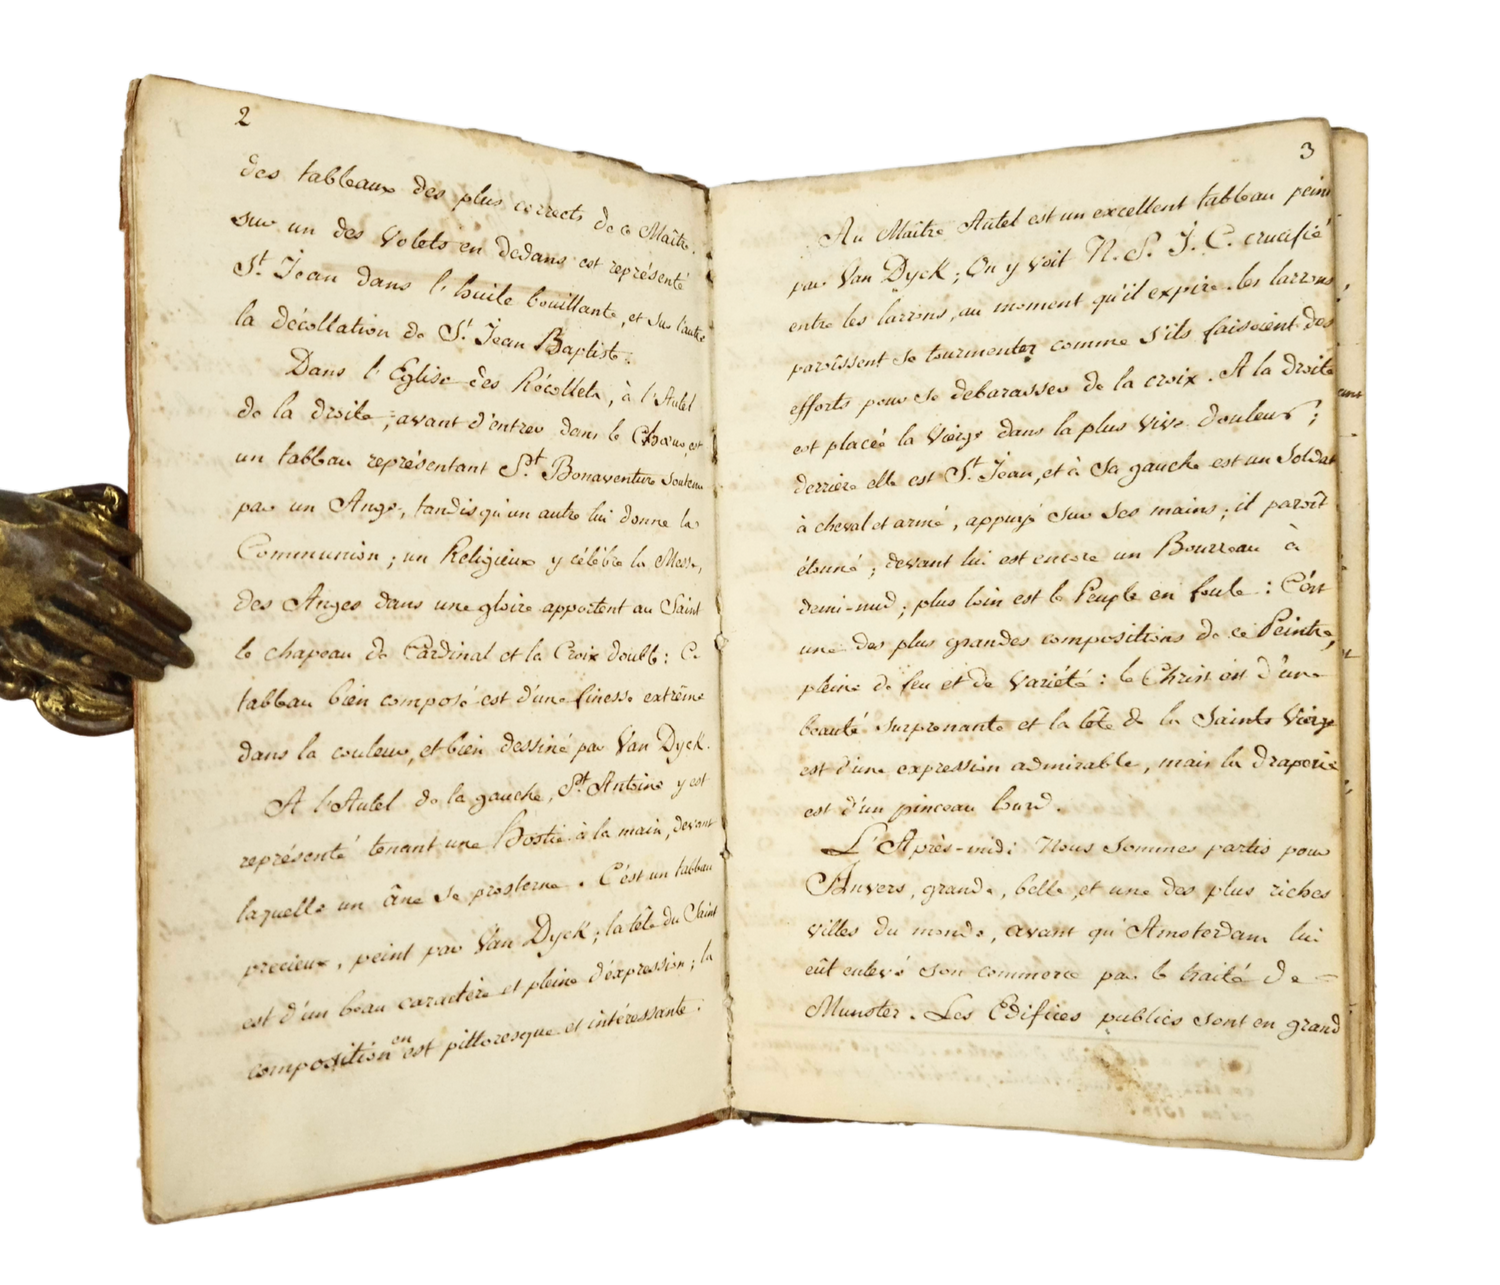 2
des tableaux des plus corrects de ce Maître.
sur un des Volets en Dedans est représenté
St. Jean dans l'huile bouillante, et sur l'autre
la décollation de St. Jean Baptiste.
Dans l'Eglise des Récollets, à l'Autel
de la droite, avant d'entrer dans le Chœur, est
un tableau représentant St. Bonaventure soutenu
par un Ange, tandis qu'un autre lui donne la
Communion; un Religieux y célébre la Messe,
des Anges dans une gloire apportent au Saint
le chapeau de Cardinal et la Croix double: Ce
tableau bien composé est d'une finesse extrême
dans la couleur, et bien dessiné par Van Dyck.
A l'Autel de la gauche, St. Antoine y est
représenté tenant une Hostie à la main, devant
laquelle un âne se prosterne. C'est un tableau
precieux, peint par Van Dyck; la tête du Saint
est d'un beau caractère et pleine d'éxpression; la
composition en est pittoresque et intéressante.
3
Au Maître Autel est un excellent tableau peint
par Van Dyck; On y voit N. S. J. C. crucifié
entre les larrons, au moment qu'il expire. les larrons
paroissent se tourmenter comme s'ils faisoient des
efforts pour se debarasser de la croix. A la droite
est placée la Vierge dans la plus vive douleur;
derrière elle est St. Jean, et à sa gauche est un Soldat
à cheval et armé, appuyé sur ses mains; il paroît
étonné; devant lui est encore un Bourreau à
demi-nud; plus loin est le Peuple en foule: C'est
une des plus grandes compositions de ce Peintre,
pleine de feu et de variété: le Christ est d'une
beauté surprenante et la tête de la Sainte Vierge
est d'une expression admirable, mais la draperie
est d'un pinceau lourd.
L'Après-midi Nous sommes partis pour
Anvers, grande, belle, et une des plus riches
villes du monde, avant qu'Amsterdam lui
eût enlevé son commerce par le traité de =
Munster. Les Edifices publics sont en grand